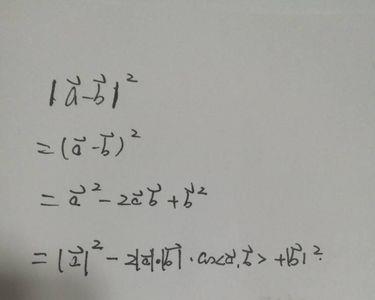 |a⃗-b⃗|²
=(a⃗-b⃗)²
=a⃗²-2a⃗b⃗+b⃗²
=|a⃗|²-2|a⃗|·|b⃗|·cos<a⃗,b⃗>+|b⃗|²